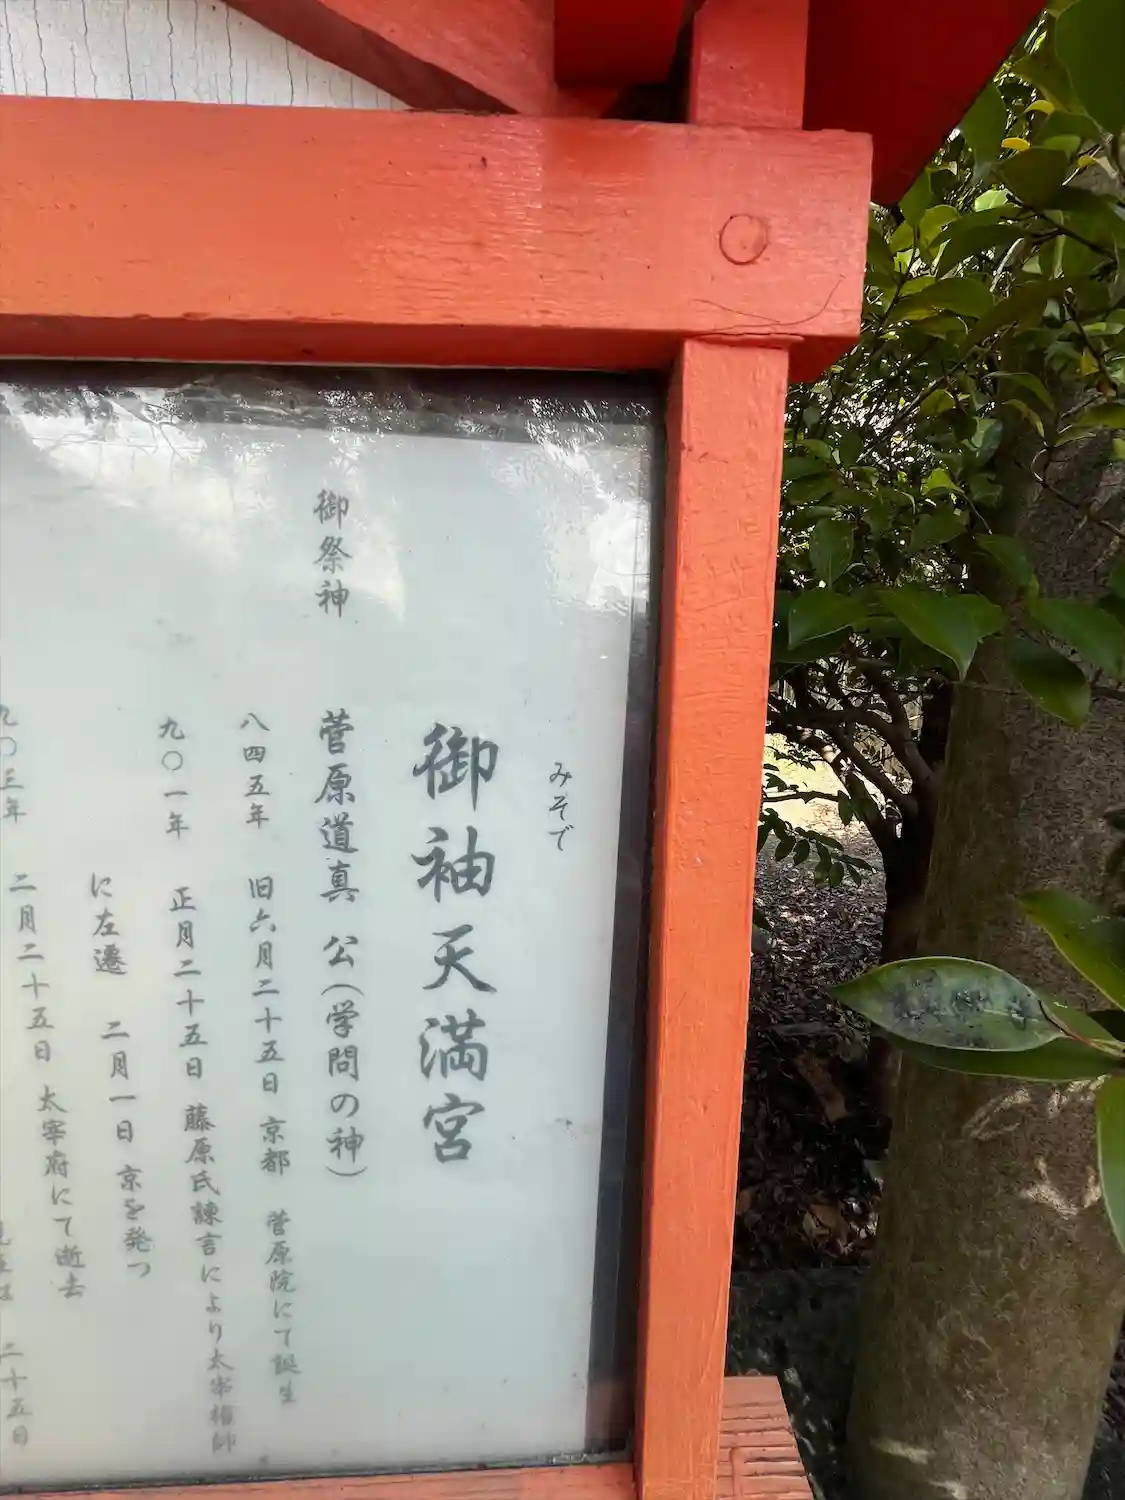 みそで
御袖天満宮
御祭神 菅原道真 公(学問の神)
八四五年 旧六月二十五日 京都 菅原院にて誕生
九〇一年 正月二十五日 藤原氏諫言により太宰権師
に左遷 二月一日 京を発つ
九〇三年 二月二十五日 太宰府にて逝去
二十五日